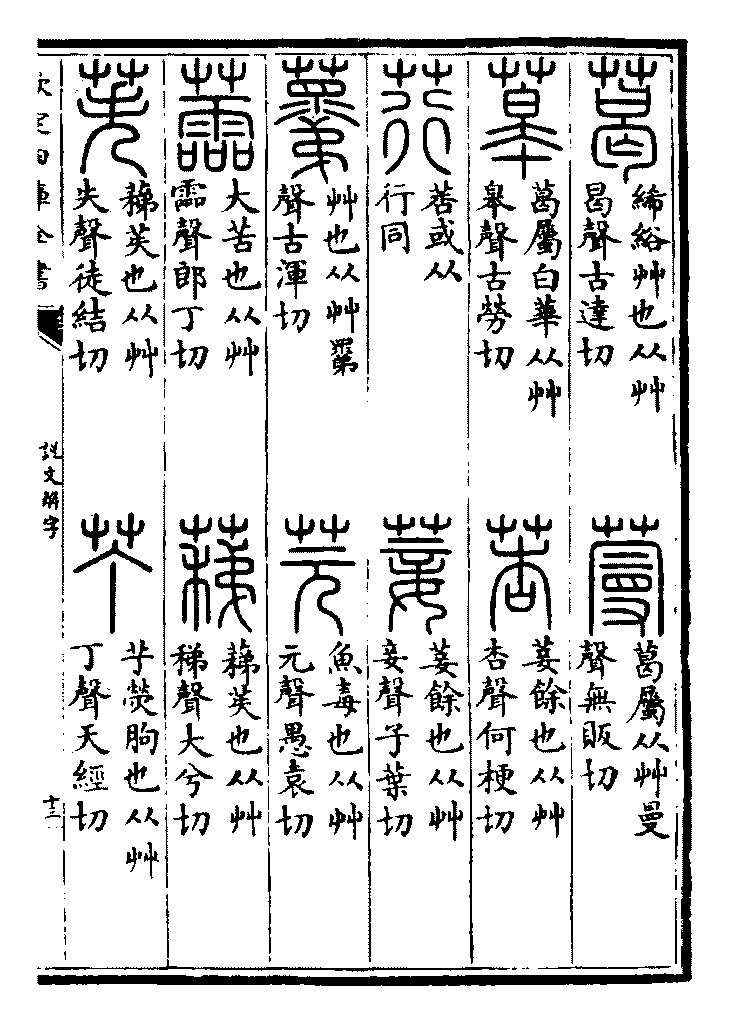 葛
絺綌艸也从艸
曷聲古達切
蔓
葛屬从艸曼
聲無販切
䓘
葛屬白華从艸
皐聲古勞切
莕
菨餘也从艸
杏聲何梗切
荇
莕或从
行同
菨
菨餘也从艸
妾聲子葉切
艸也从艸
聲古渾切
芫
魚毒也从艸
元聲愚袁切
蘦
大苦也从艸
霝聲郎丁切
蕛
蕛苵也从艸
稊聲大兮切
苵
蕛苵也从艸
失聲徒結切
艼
艼熒朐也从艸
丁聲天經切
欽定四庫全書
說文解字
十三